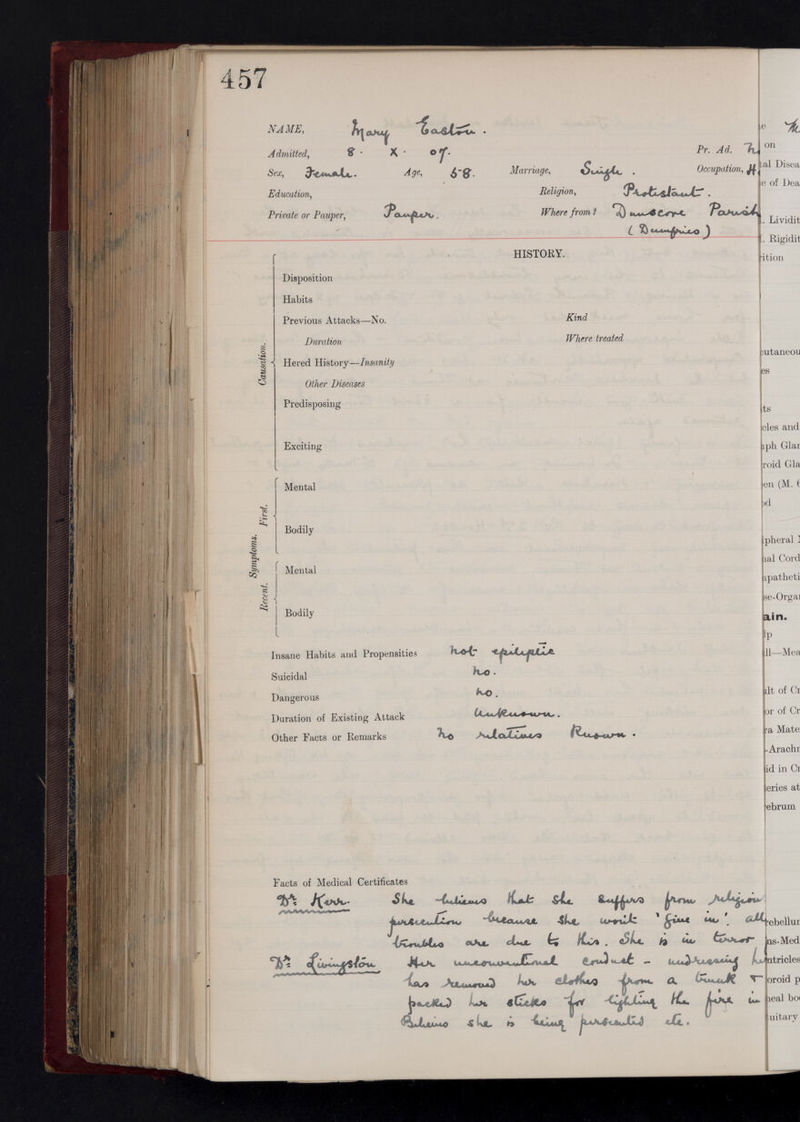 457
NAME, Mary Easton.
Admitted, 8 · X · 07. Pr. Ad.
Sex, Female. Age, 58. Marriage, Single. Occupation,
Education, Religion, Protestant.
Private or Pauper, Pauper. Where from? Dunscore Parish
(Dumfries)
HISTORY.
Causation.
Disposition
Habits
Previous Attacks—No. Kind
Duration Where treated
Hered History—Insanity
Other Diseases
Predisposing
Exciting
Symptoms.
First.
Mental
Bodily
Recent.
Mental
Bodily
Insane Habits and Propensities not epileptic
Suicidal no.
Dangerous no.
Duration of Existing Attack Unknown.
Other Facts or Remarks No relatives known.
Facts of Medical Certificates
Dr. Kerr. She believes that she suffers from religious
persecution because she won't 'give in'. All
troubles are due to this. She is in terror
Dr. Livingston Her unconventional conduct - undressing
has removed her clothes from a trunk &
packed her sticks for lighting the fire in
Believes she is being persecuted etc.
on
al Disea
e of Dea
Lividit
Rigidit
ition
utaneou
es
ts
cles and
ph Glan
roid Gla
en (M.
pheral
al Cord
patheti
se-Orga
ain.
ll—Mea
lt of Cr
or of Cr
ra Mate
-Arachn
id in Cr
eries at
ebrum
ebellur
s-Med
ntricles
oroid p
eal bo
uitary